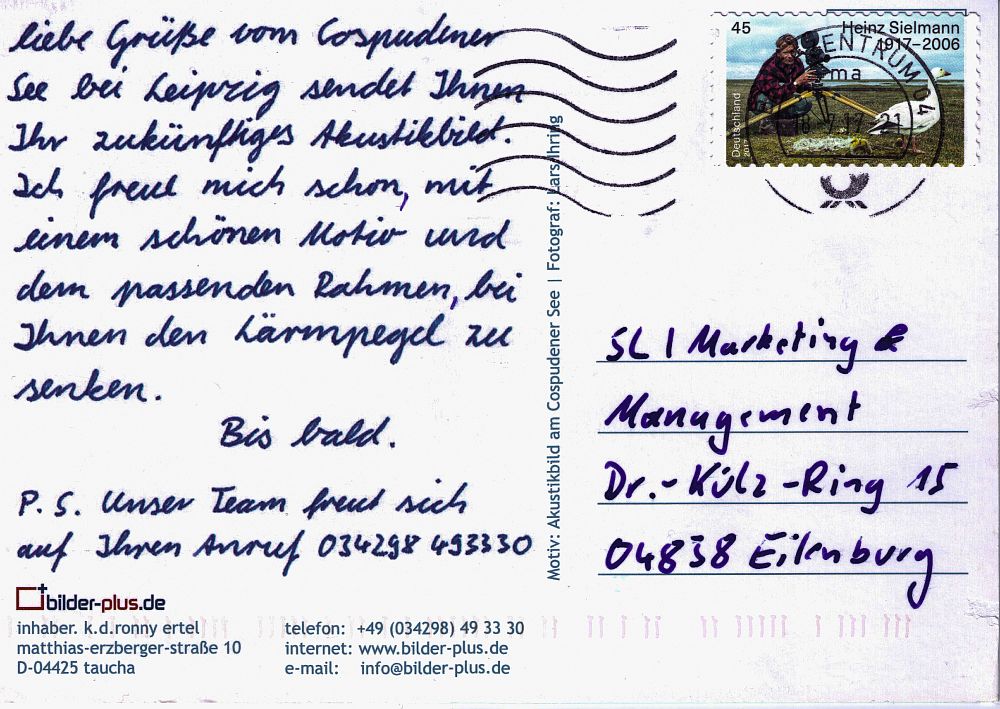 liebe Grüße vom Cospudener
See bei Leipzig sendet Ihnen
Ihr zukünftiges Akustikbild.
Ich freue mich schon, mit
einem schönen Motiv und
dem passenden Rahmen, bei
Ihnen den Lärmpegel zu
senken.
Bis bald.
P. S. Unser Team freut sich
auf Ihren Anruf 034298 493330
bilder-plus.de
inhaber. k.d.ronny ertel
matthias-erzberger-straße 10
D-04425 taucha
telefon: +49 (034298) 49 33 30
internet: www.bilder-plus.de
e-mail: info@bilder-plus.de
Motiv: Akustikbild am Cospudener See | Fotograf: Lars Ihring
45
Heinz Sielmann
1917–2006
Deutschland
2017
ZENTRUM 04
SL | Marketing &
Management
Dr.-Külz-Ring 15
04838 Eilenburg